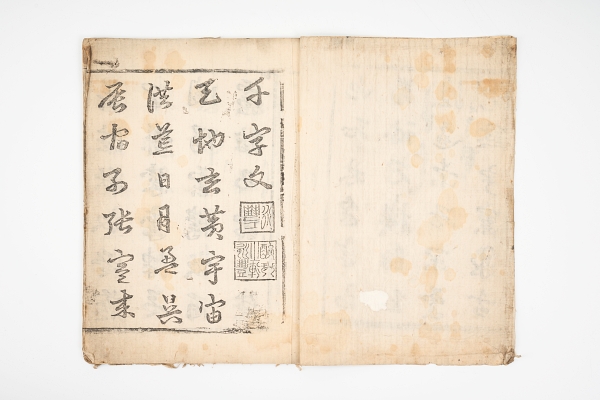 千字文
天地玄黃宇宙
洪荒日月盈昃
辰宿列張寒來